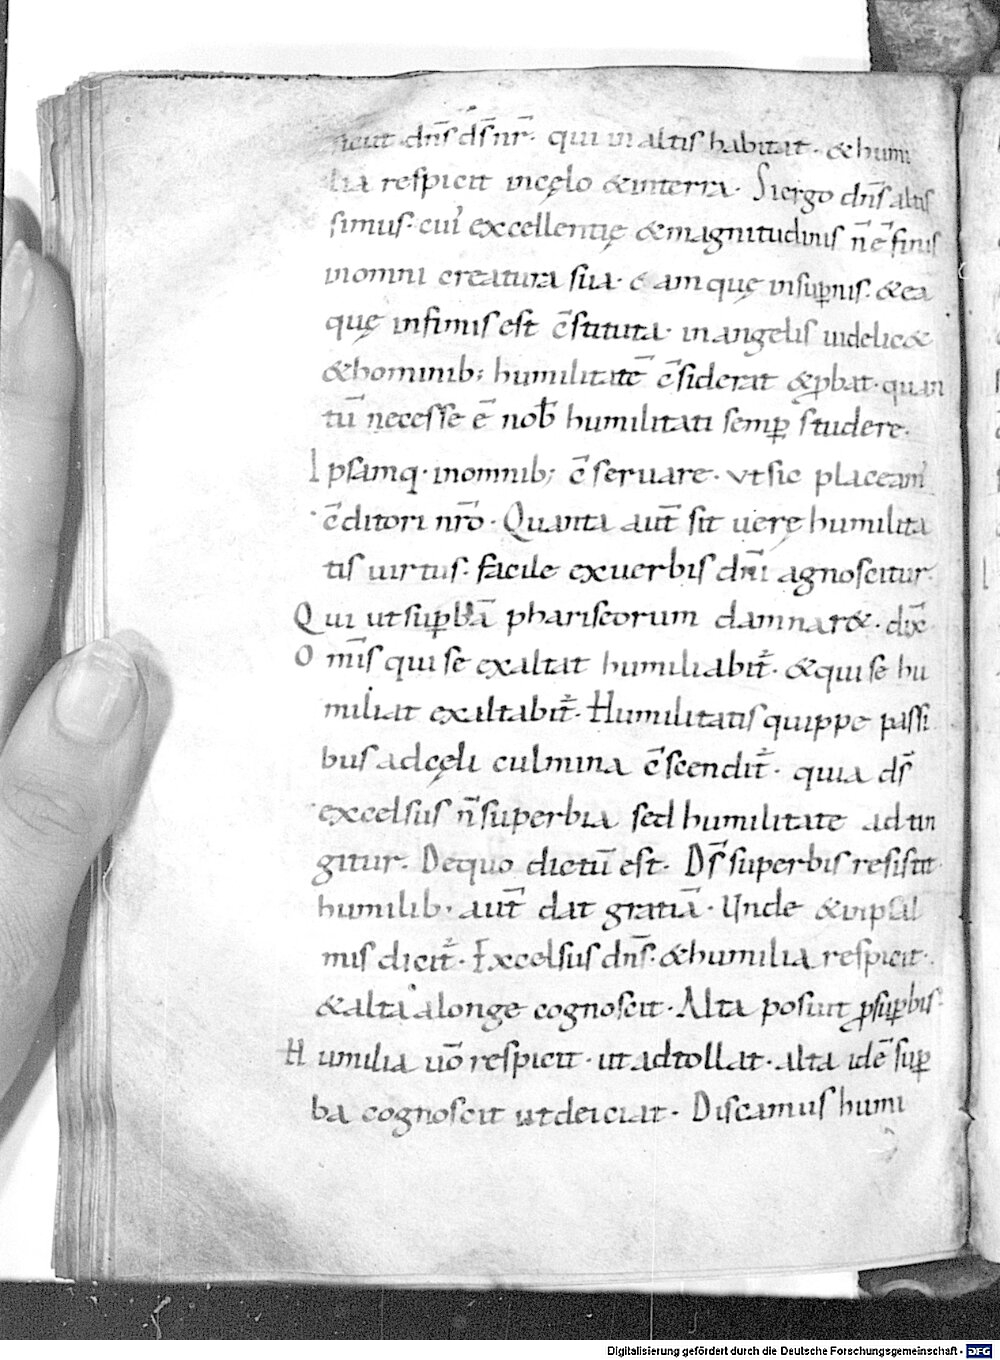 sicut dn̄s ds̄ nr̄. qui in altis habitat. & humi
lia respicit in cęlo & in terra. Si ergo dn̄s altis
simus. cui' excellentię & magnitudinis n̄ ē finis
in omni creatura sua. & am quę in sup̲nis. & ea
quę in infimis est c̄stituta. in angelis uidelic&
& hominib; humilitatē c̄siderat & p̲bat. quan
tū necesse ē nob̄ humilitati semp̲ studere.
Ipsamq. in omnib; c̄seruare. vt sic placeam'
c̄ditori nr̄o. Quanta aut̄ sit uerę humilita
tis uirtus. facile ex uerbis dn̄i agnoscitur.
Qui ut sup̲bā phariseorum damnar&. dix̄
Om̄is qui se exaltat humiliabit̄. & qui se hu
miliat exaltabit̄. Humilitatis quippe passi
bus ad cęli culmina c̄scendit̄. quia ds̄
excelsus n̄ superbia sed humilitate adtin
gitur. De quo dictū est. Ds̄ superbis resistit.
humilib. aut̄ dat gratiā. Unde & in psal
mis dicit̄. Excelsus dn̄s. & humilia respicit.
& alta a longe cognoscit. Alta posuit p̲ sup̲bis.
Humilia uō respicit. ut adtollat. alta idē sup̲
ba cognoscit ut deiciat. Discamus humi
Digitalisierung gefördert durch die Deutsche Forschungsgemeinschaft - DFG